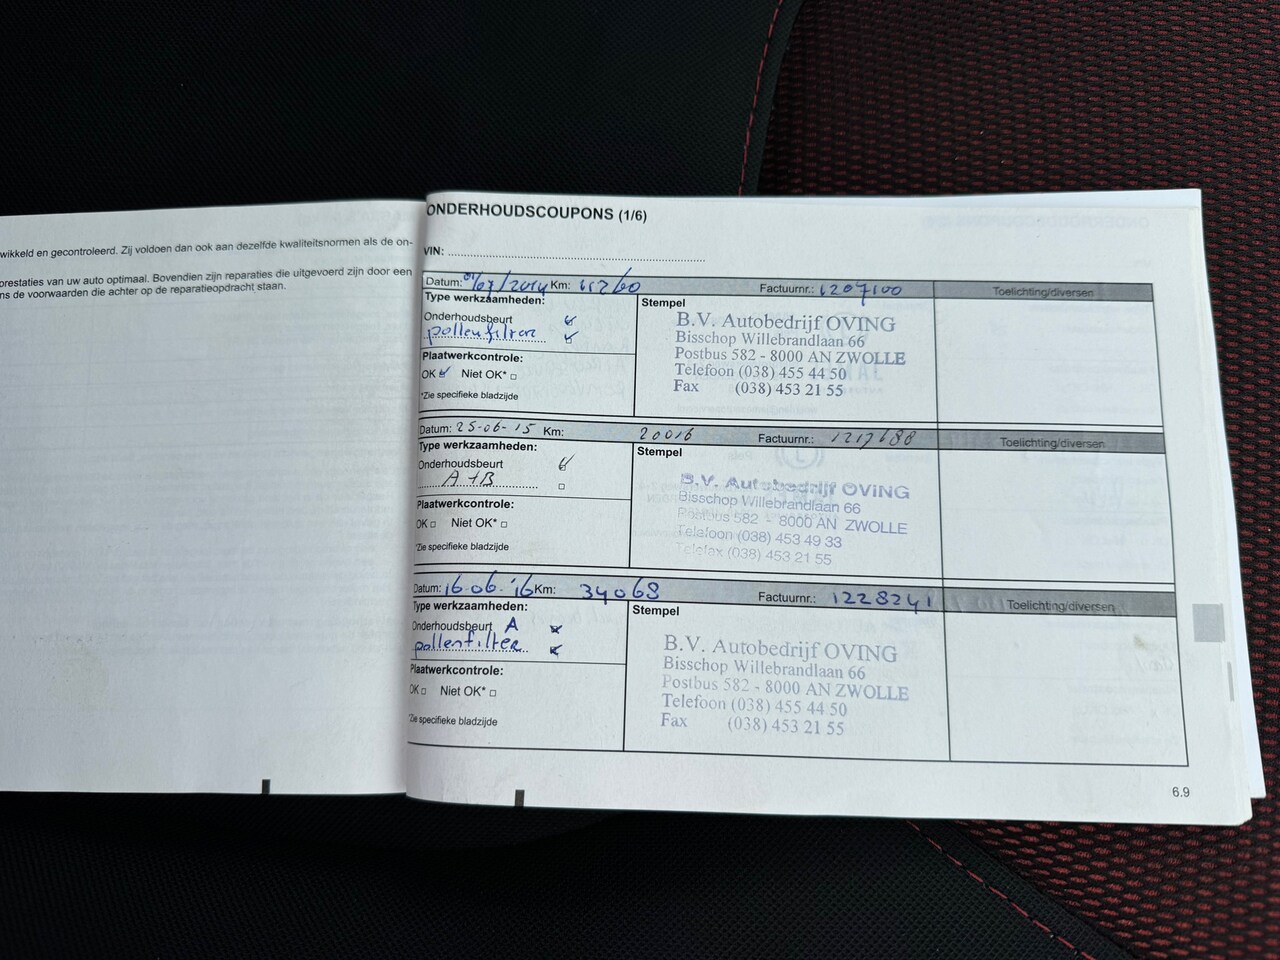 wikkeld en gecontroleerd. Zij voldoen dan ook aan dezelfde kwaliteitsnormen als de on-
prestaties van uw auto optimaal. Bovendien zijn reparaties die uitgevoerd zijn door een
ns de voorwaarden die achter op de reparatieopdracht staan.
ONDERHOUDSCOUPONS (1/6)
VIN:
Datum: 01/07/2014 Km: Factuurnr.: 1207100 Toelichting/diversen
Type werkzaamheden: Stempel
Onderhoudsbeurt
pollenfilter
Plaatwerkcontrole:
OK Niet OK*
*Zie specifieke bladzijde
B.V. Autobedrijf OVING
Bisschop Willebrandlaan 66
Postbus 582 - 8000 AN ZWOLLE
Telefoon (038) 455 44 50
Fax (038) 453 21 55
Datum: 25-06-15 Km: 20016 Factuurnr.: 1217688 Toelichting/diversen
Type werkzaamheden: Stempel
Onderhoudsbeurt
A+B
Plaatwerkcontrole:
OK Niet OK*
*Zie specifieke bladzijde
B.V. Autobedrijf OVING
Bisschop Willebrandlaan 66
Postbus 582 - 8000 AN ZWOLLE
Telefoon (038) 453 49 33
Telefax (038) 453 21 55
Datum: 16-06-'16 Km: 34068 Factuurnr.: 1228241 Toelichting/diversen
Type werkzaamheden: Stempel
Onderhoudsbeurt A
pollenfilter
Plaatwerkcontrole:
OK Niet OK*
*Zie specifieke bladzijde
B.V. Autobedrijf OVING
Bisschop Willebrandlaan 66
Postbus 582 - 8000 AN ZWOLLE
Telefoon (038) 455 44 50
Fax (038) 453 21 55
6.9